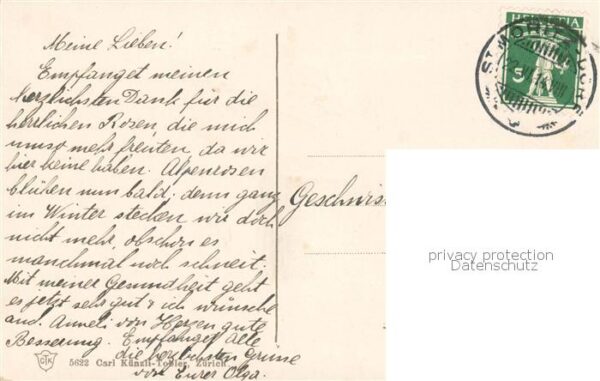 Meine Lieben!
Empfanget meinen
herzlichsten Dank für die
herrlichen Rosen, die mich
umso mehr freuten, da wir
hier keine haben. Alpenrosen
blühen nun bald; denn ganz
im Winter stecken wir doch
nicht mehr, obschon es
manchmal noch schneit.
Mit meiner Gesundheit geht
es jetzt sehr gut & ich wünsche
and. Anneli von Herzen gute
Besserung. Empfanget alle
die herzlichsten Grüsse
von Eurer Olga.
CTK
5622 Carl Künzli-Tobler, Zürich
HELVETIA
5
ST. MORITZ
Geschwis
privacy protection
Datenschutz